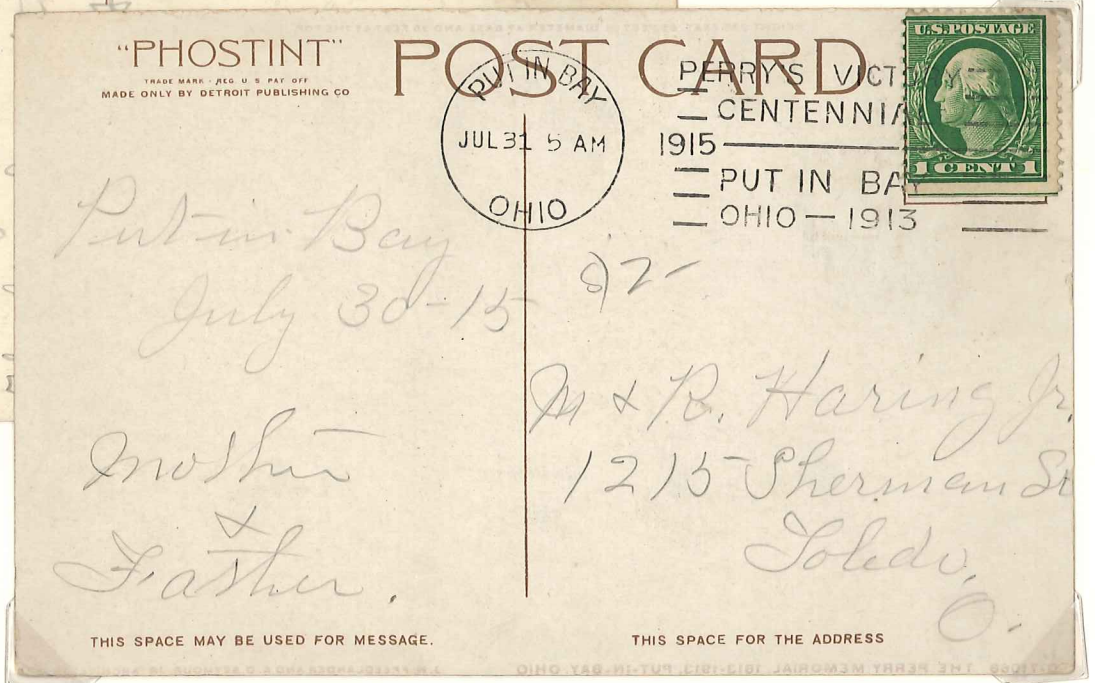 "PHOSTINT"
TRADE MARK · REG. U S PAT OFF
MADE ONLY BY DETROIT PUBLISHING CO
POST CARD
PUT IN BAY
JUL 31 5 AM
OHIO
1915
PERRY'S VICT
CENTENNIA
PUT IN BAY
OHIO — 1913
U.S. POSTAGE
1 CENT 1
Put-in-Bay
July 30-15
Mother
&
Father.
M & R. Haring Jr.
1215 Sherman St
Toledo,
O.
THIS SPACE MAY BE USED FOR MESSAGE.
THIS SPACE FOR THE ADDRESS
THE PERRY MEMORIAL 1813-1913, PUT-IN-BAY, OHIO